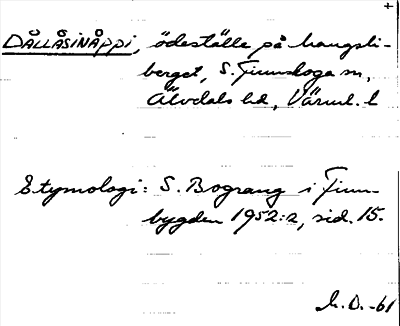 +
DÅLLÅSINÅPPI, ödeställe på hangsli-
berget, S. Finnskoga sn,
Älvdals hd, Värml. l
Etymologi: S. Bograng i Finn-
bygden 1952:2, sid. 15.
L.D. -61